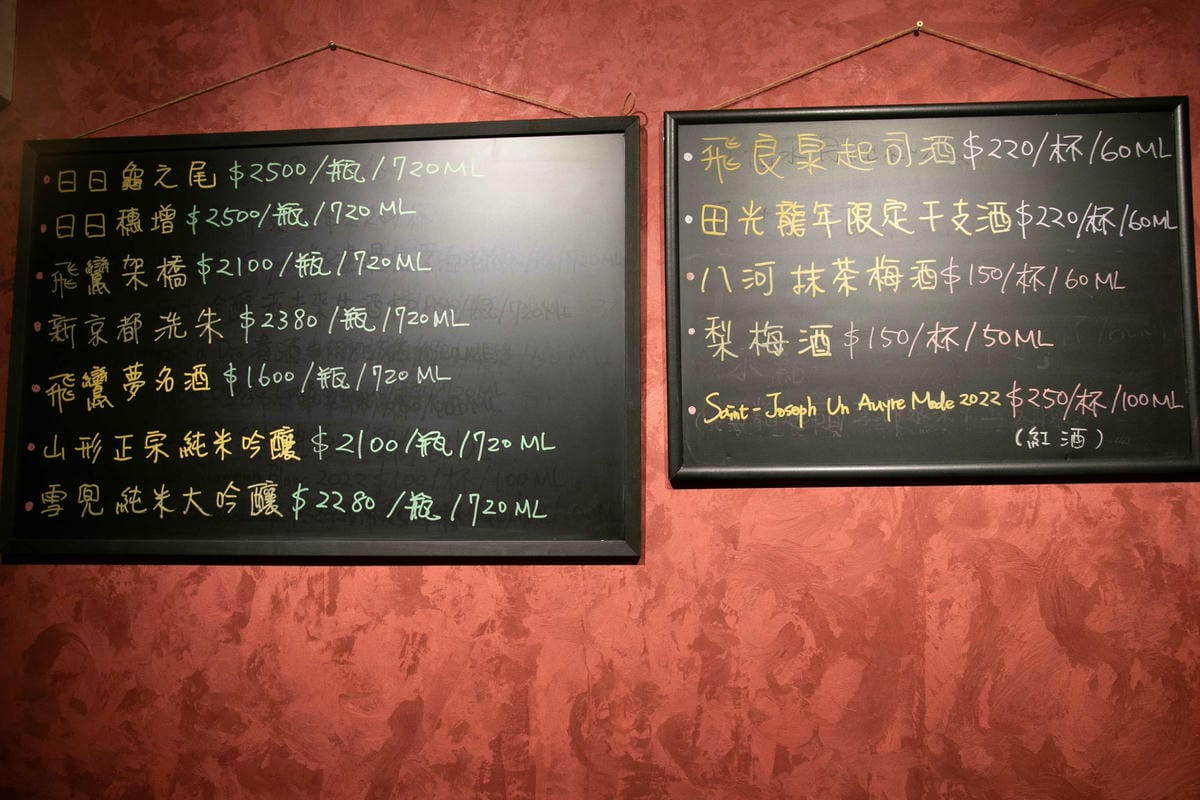 日日龜之尾 $2500/瓶/720ML
日日穗增 $2500/瓶/720ML
飛鸞架橋 $2100/瓶/720ML
新京都洗朱 $2380/瓶/720ML
飛鸞夢名酒 $1600/瓶/720ML
山形正宗純米吟釀 $2100/瓶/720ML
雪兜純米大吟釀 $2280/瓶/720ML
飛良泉起司酒 $220/杯/60ML
田光龍年限定干支酒 $220/杯/60ML
八河抹茶梅酒 $150/杯/60ML
梨梅酒 $150/杯/50ML
Saint-Joseph Un Auyre Mode 2022 $250/杯/100ML
(紅酒)